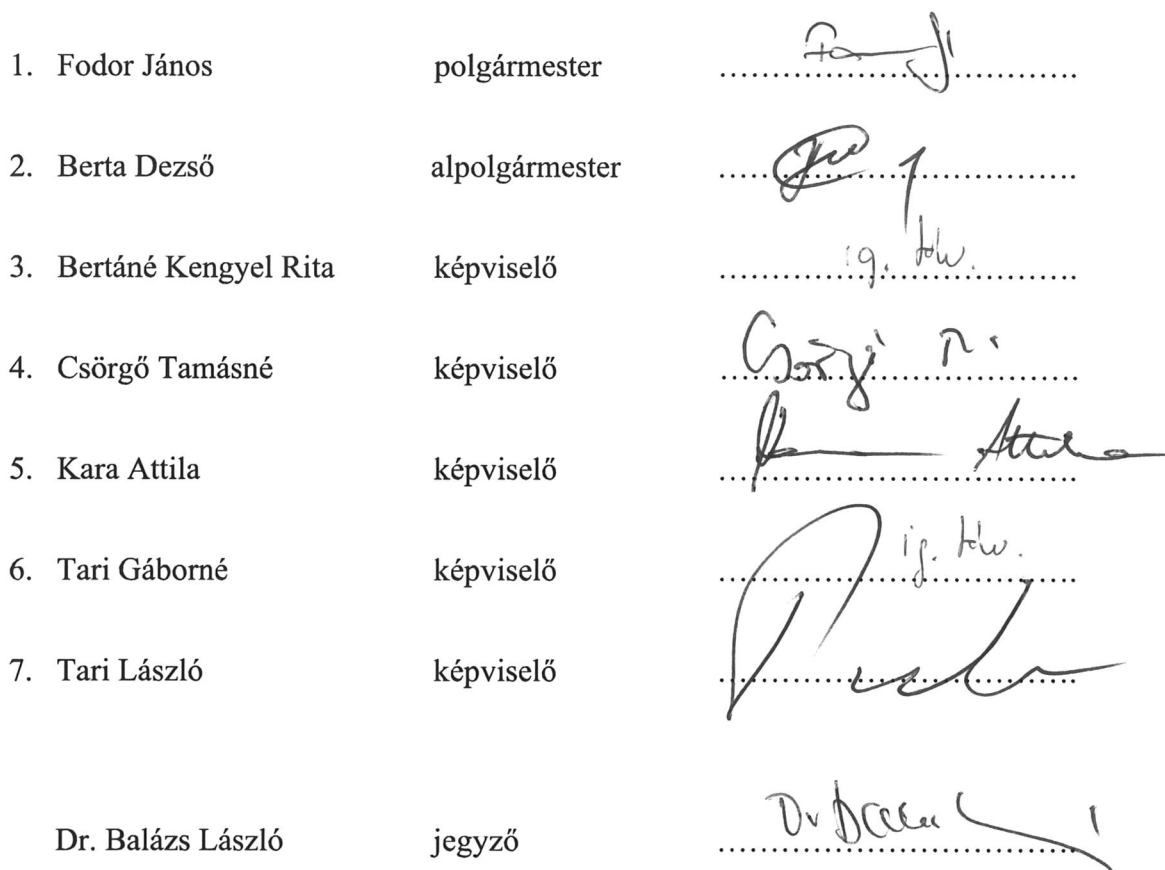 1. Fodor János polgármester ..............................
2. Berta Dezső alpolgármester ..............................
ig. táv.
3. Bertáné Kengyel Rita képviselő ..............................
Csörgő T.
4. Csörgő Tamásné képviselő ..............................
Attila
5. Kara Attila képviselő ..............................
ig. táv.
6. Tari Gáborné képviselő ..............................
7. Tari László képviselő ..............................
Dr
Dr. Balázs László jegyző ..............................